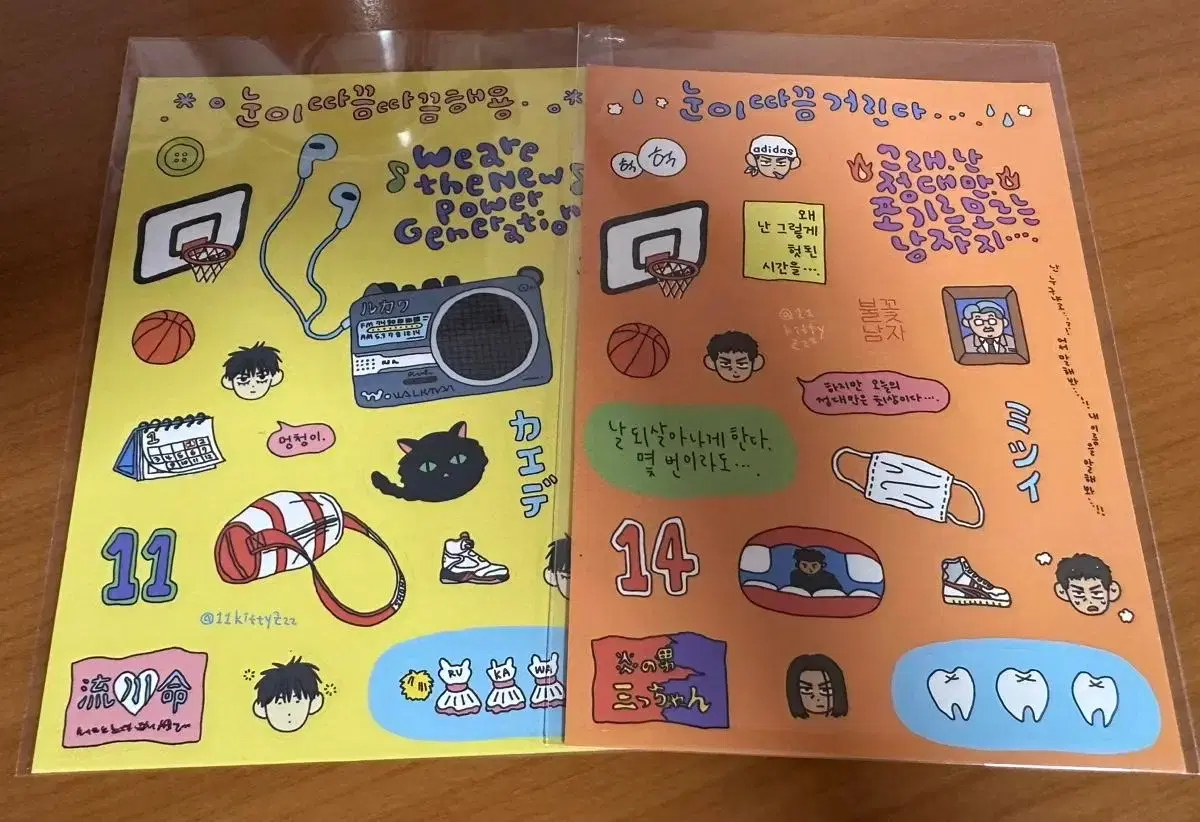 눈이 따끔따끔해용
We are
the New
Power
Generation
ルカワ
FM
AM
WALKMAN
1
멍청이.
カエデ
11
@11kittyzzz
流川命
RU
KA
WA
눈이 따끔거린다...
헉
헉
adidas
그래, 난
정대만.
포기를 모르는
남자지...
왜
난 그렇게
헛된
시간을...
@11
kitty
zzz
불꽃
남자
난 누구냐고..?
내 이름을 말해봐..!!
하지만 오늘의
정대만은 최상이다....
날 되살아나게 한다.
몇 번이라도...
ミツイ
14
炎の男
三っちゃん